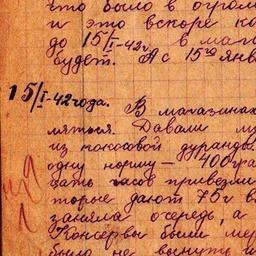 что было в огром
и это вскоре ко
до 15/I-42г. в мага
будет. А с 15го янв
15/I-42 года.
В магазинах
ляться. Давали му
из кокосовой дуранды.
одну норму — 400 гра
цать часов привезли
торые дают 75 г в
заняла очередь, а
Консервы были мер
было не вынуть и